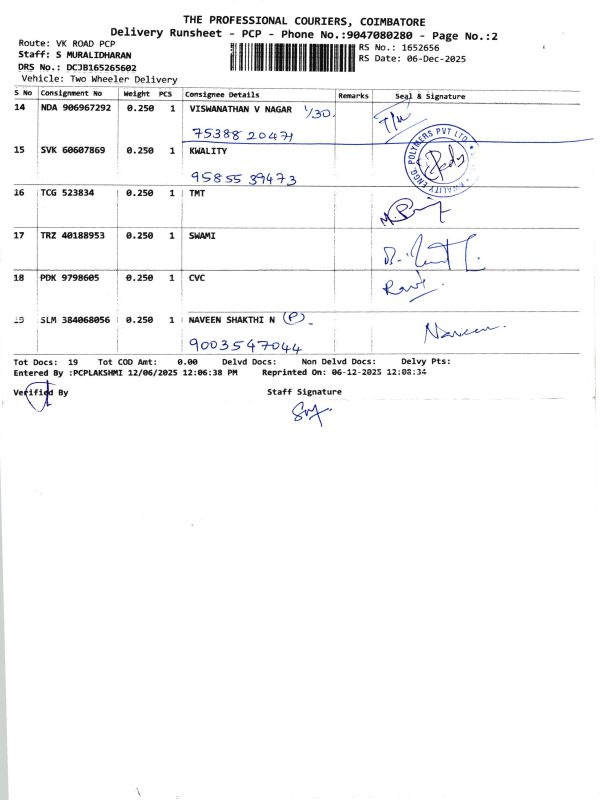 THE PROFESSIONAL COURIERS, COIMBATORE
Delivery Runsheet - PCP - Phone No.:9047080280 - Page No.:2
Route: VK ROAD PCP
RS No.: 1652656
Staff: S MURALIDHARAN
RS Date: 06-Dec-2025
DRS No.: DCJB165265602
Vehicle: Two Wheeler Delivery
S No Consignment No Weight PCS Consignee Details Remarks Seal & Signature
14 NDA 906967292 0.250 1 VISWANATHAN V NAGAR 1/30.
75388 20471
15 SVK 60607869 0.250 1 KWALITY
95855 39473
KWALITY ENGG. POLYMERS PVT LTD
16 TCG 523834 0.250 1 TMT
17 TRZ 40188953 0.250 1 SWAMI
18 PDK 9798605 0.250 1 CVC
19 SLM 384068056 0.250 1 NAVEEN SHAKTHI N (P)
Naveen
9003547044
Tot Docs: 19 Tot COD Amt: 0.00 Delvd Docs: Non Delvd Docs: Delvy Pts:
Entered By :PCPLAKSHMI 12/06/2025 12:06:38 PM Reprinted On: 06-12-2025 12:08:34
Verified By Staff Signature